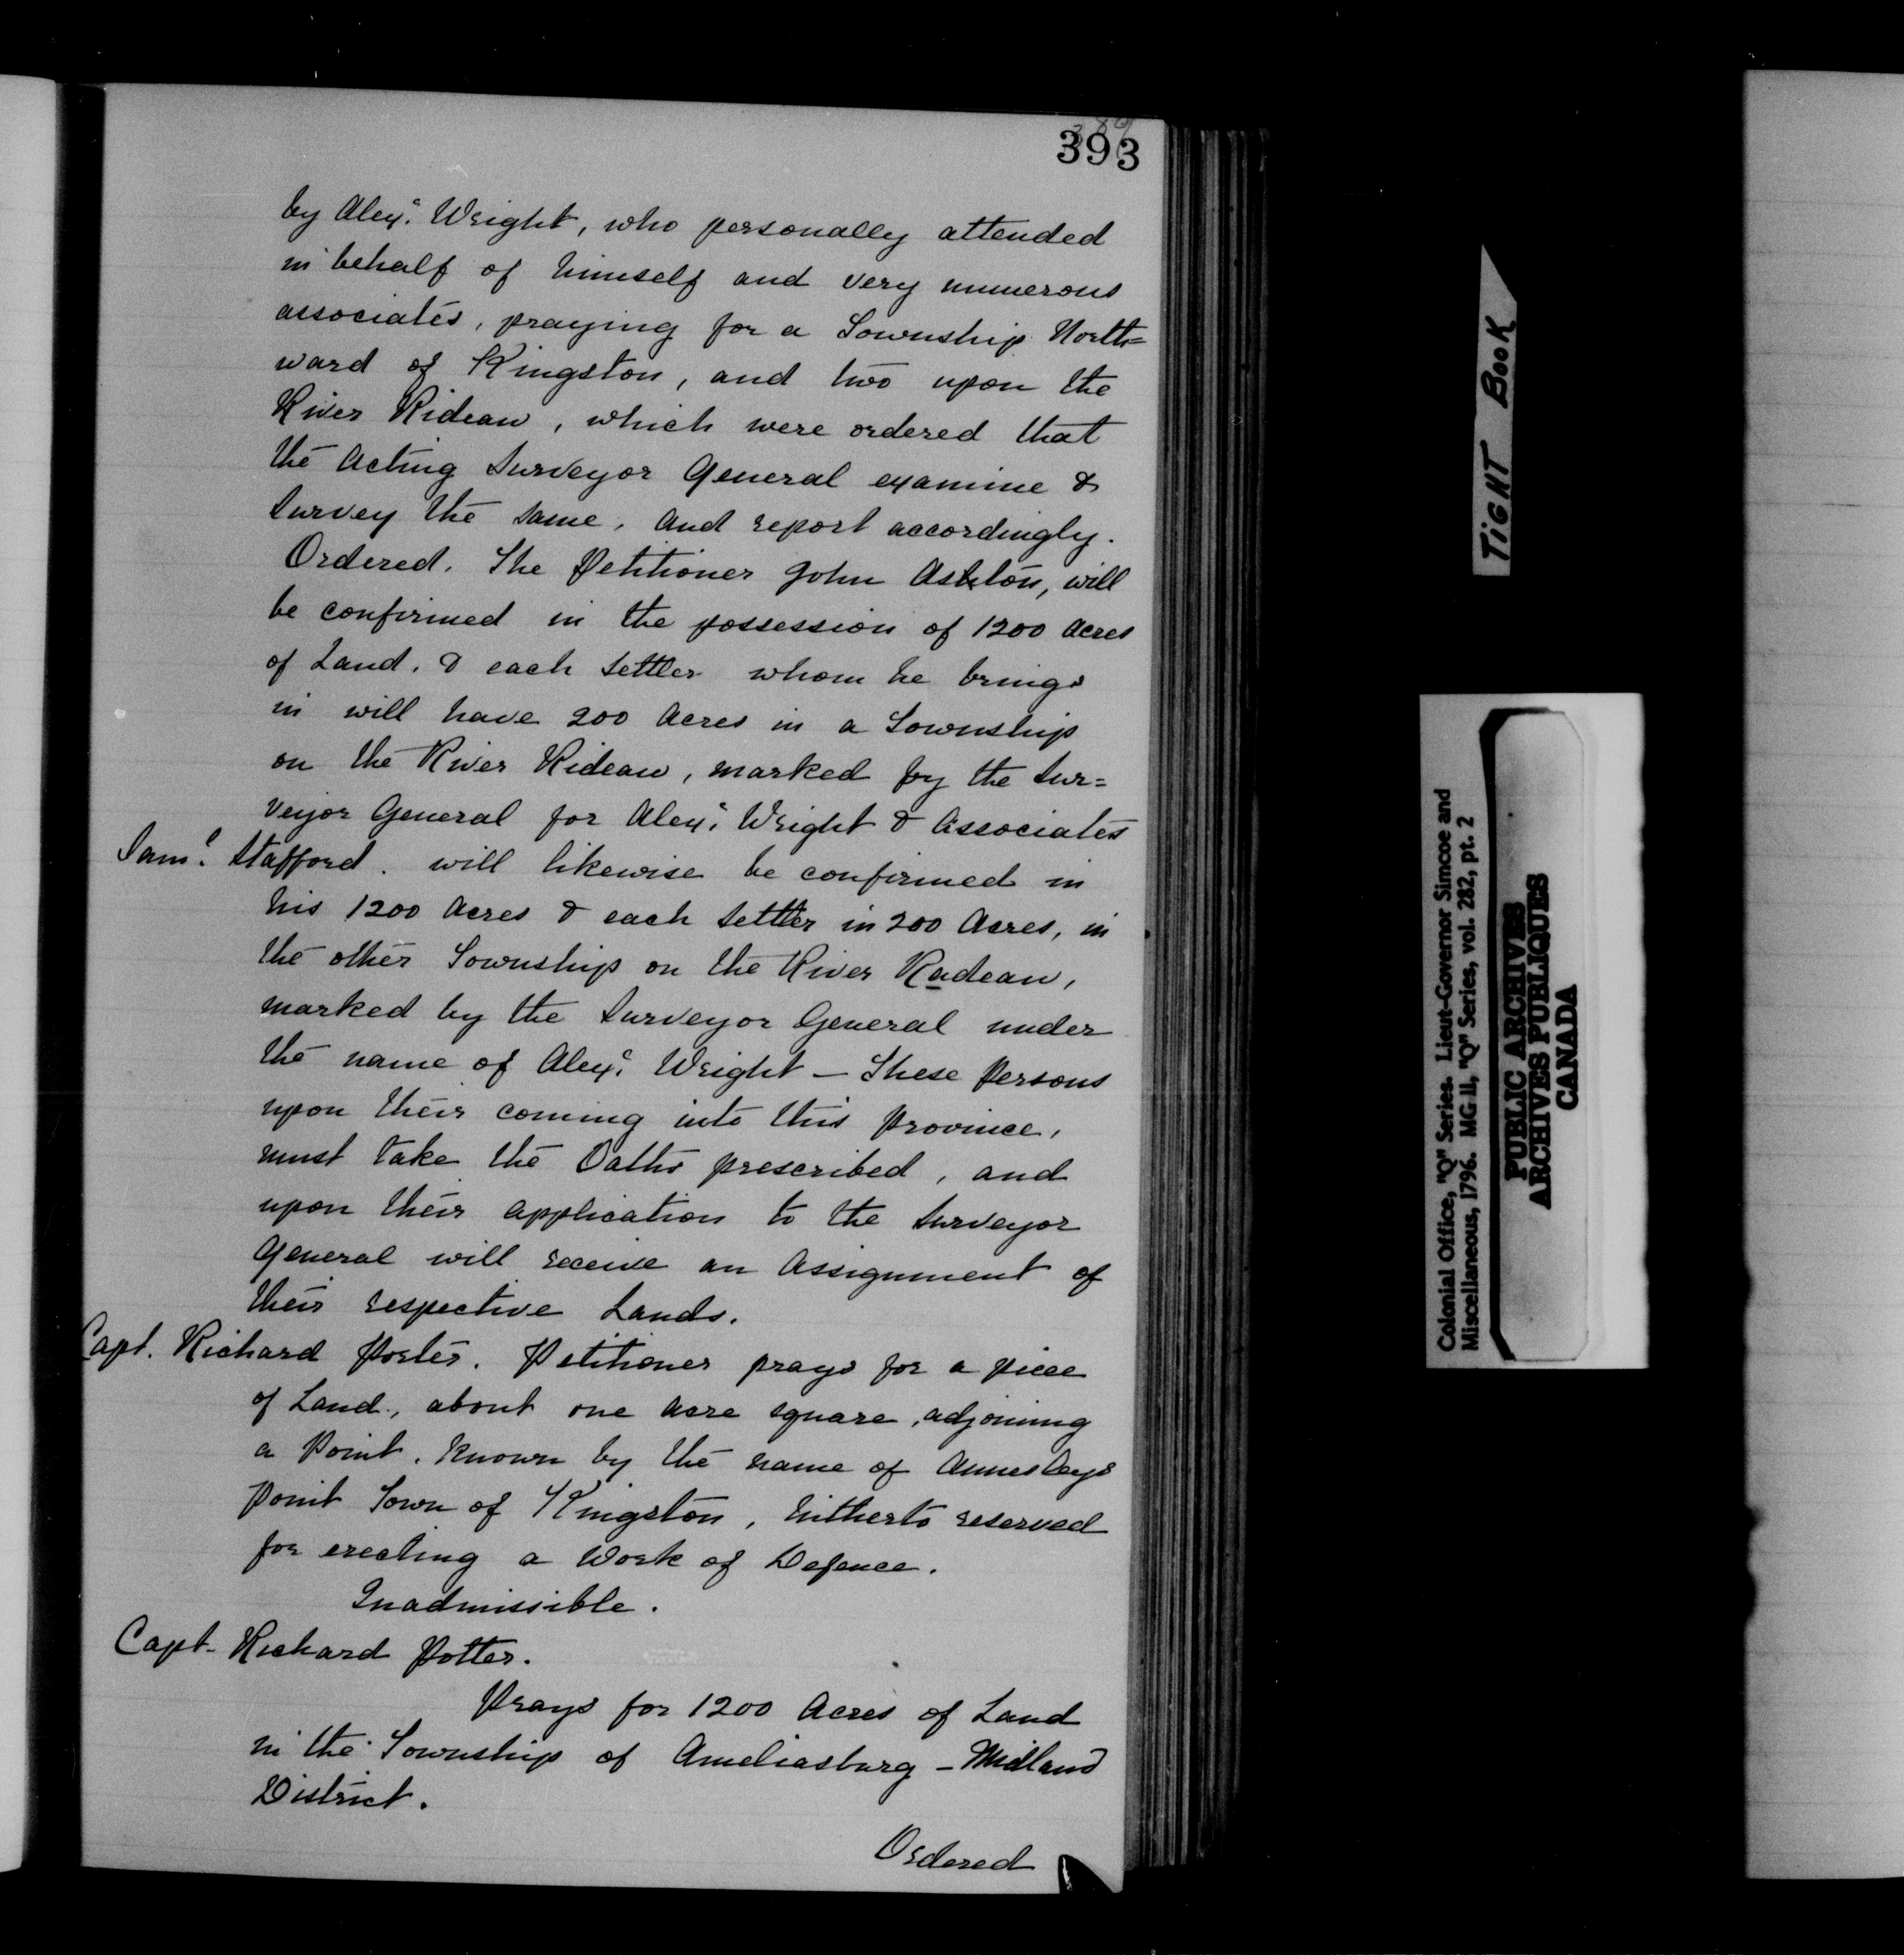 389
393
by Alexr. Wright, who personally attended
in behalf of himself and very numerous
associates, praying for a Township North=
ward of Kingston, and two upon the
River Rideau, which were ordered that
the Acting Surveyor General examine &
Survey the same, and report accordingly.
Ordered. The Petitioner John Ashton, will
be confirmed in the possession of 1200 Acres
of Land. & each settler whom he brings
in will have 200 Acres in a Township
on the River Rideau, marked by the Sur=
veyor General for Alexr. Wright & Associates
Saml. Stafford. will likewise be confirmed in
his 1200 Acres & each settler in 200 Acres, in
the other Township on the River Radeau,
marked by the Surveyor General under
the name of Alexr. Wright — These Persons
upon their coming into this Province,
must take the Oaths prescribed, and
upon their application to the Surveyor
General will receive an Assignment of
their respective Lands.
Capt. Richard Porter. Petitioner prays for a piece
of Land, about one Acre square, adjoining
a Point, known by the name of Annesleys
point Town of Kingston, hitherto reserved
for erecting a Work of Defence.
Inadmissible.
Capt. Richard Potter.
Prays for 1200 Acres of Land
in the Township of Ameliasburg – Midland
District.
Ordered
TIGHT BOOK
Colonial Office, "Q" Series. Lieut-Governor Simcoe and
Miscellaneous, 1796. MG 11, "Q" Series, vol. 282, pt. 2
PUBLIC ARCHIVES
ARCHIVES PUBLIQUES
CANADA